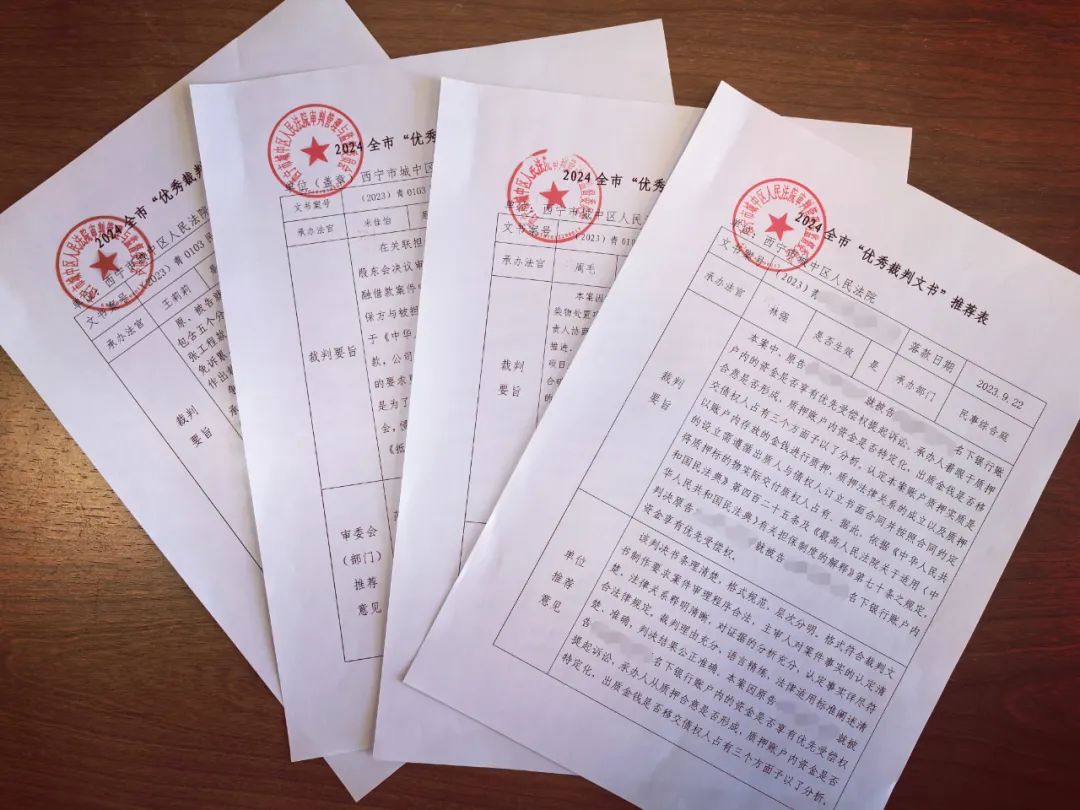 2024 全市“优秀裁判
单位
西宁市城中区人民法院
文书案号
(2023)青 0103
承办法官
王莉莉
原、被告
包含五个分
张工程款
免诉累
作总
裁判
要旨
2024 全市“优秀
单位（盖章）西宁市城中区
文书案号
(2023)青 0103
承办法官
朱佳怡
在关联担
股东会决议审
融借款案件
保方与被担
于《中华
款,公司
的要求
是为了
会,
《抵
裁判要旨
审委会
（部门）
推荐
意见
2024 全市“优秀
西宁市城中区人民
文书案号
(2023)青 0103
承办法官
周毛
本案因
染物处置
责人协商
推进,
项目
合
裁判
要旨
2024 全市“优秀裁判文书”推荐表
单位：西宁市城中区人民法院
文书案号
(2023)青
落款日期
2023.9.22
承办法官
林强
是否生效
是
承办部门
民事综合庭
裁判
要旨
本案中，原告
就被告
名下银行账
户内的资金是否享有优先受偿权提起诉讼。承办人着眼于质押
合意是否形成、质押账户内资金是否特定化、出质金钱是否移
交债权人占有三个方面予以了分析，认定本案账户质押实质是
以账户内存放的金钱进行质押，质押法律关系的成立以及质押
的设立需遵循出质人与债权人订立书面合同并按照合同约定
将质押标的物实际交付债权人占有。据此，依据《中华人民共
和国民法典》第四百二十五条及《最高人民法院关于适用〈中
华人民共和国民法典〉有关担保制度的解释》第七十条之规定，
判决原告
就被告
名下银行账户内
资金享有优先受偿权。
单位
推荐
意见
该判决书条理清楚、格式规范、层次分明，格式符合裁判文
书制作要求案件审理程序合法，主审人对案件事实的认定清
楚，法律关系释明清晰，对证据的分析充分，认定事实详尽符
合法律规定，裁判理由充分，语言精练，法律适用标准阐述清
楚、准确，判决结果公正准确。本案因原告
就被
告
名下银行账户内的资金是否享有优先受偿权
提起诉讼，承办人从质押合意是否形成、质押账户内资金是否
特定化、出质金钱是否移交债权人占有三个方面予以了分析，